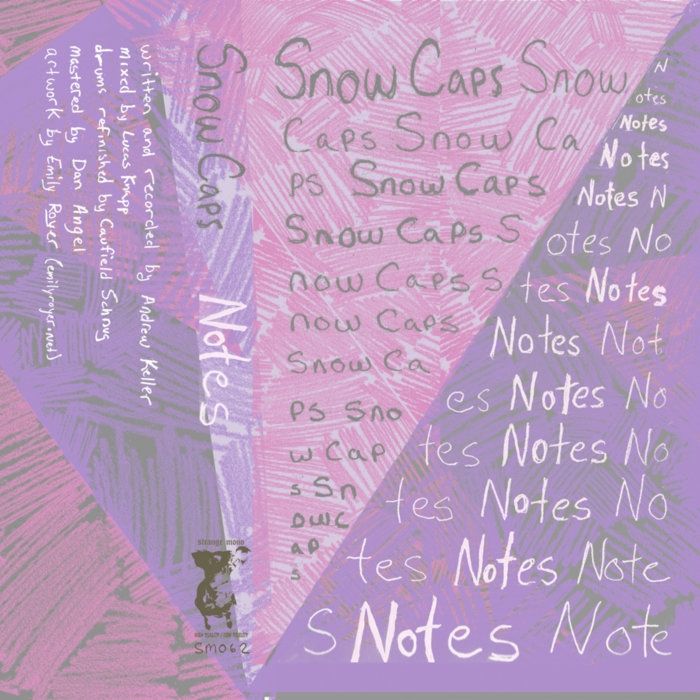 written and recorded by Andrew Keller
mixed by Lucas Knapp
drums refinished by Caufield Schnug
mastered by Dan Angel
artwork by Emily Royer (emilyroyer.net)
Snow Caps Notes
strange mono
SM062
Snow Caps Snow
Caps Snow Ca
ps Snow Caps
Snow Caps S
now Caps S
now Caps
Snow Ca
ps Sno
w Cap
s Sn
ow C
ap
s
N
otes
Notes
Notes
Notes N
otes No
tes Notes
Notes Not
es Notes No
tes Notes No
tes Notes No
tes Notes Note
s Notes Note